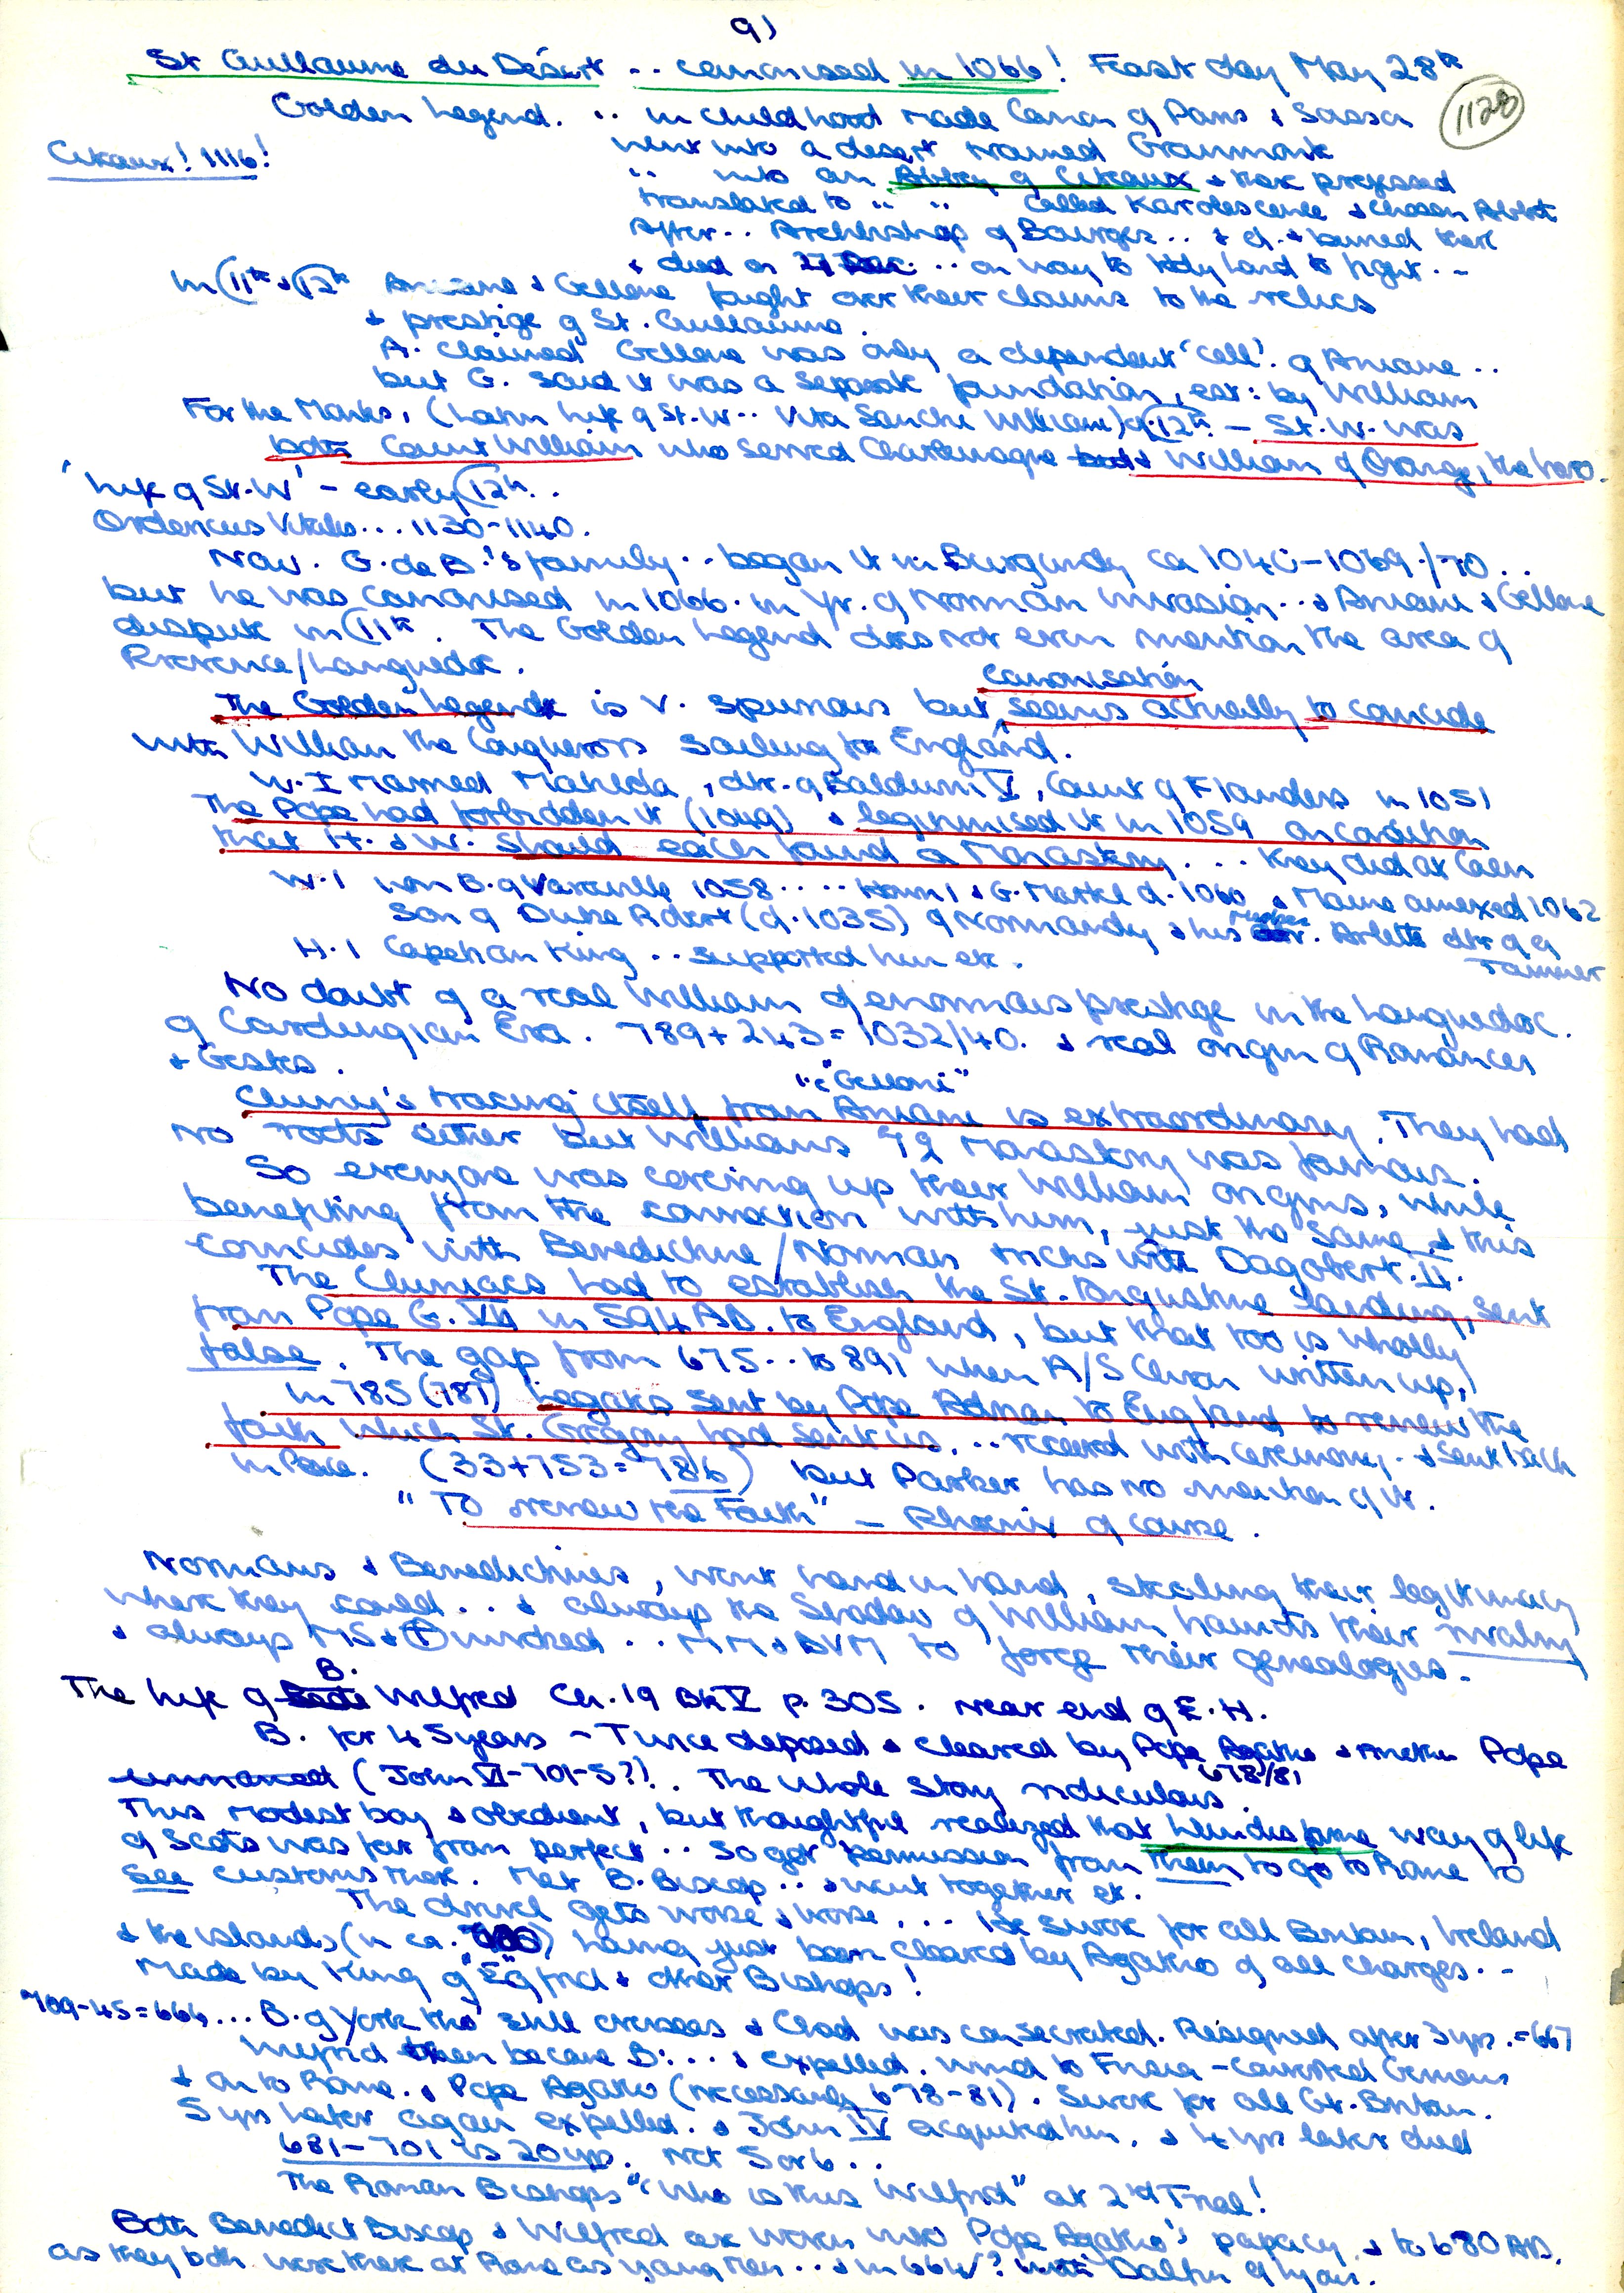 9)
St Guillaume du Désert .. canonised in 1066! Feast day May 28th
1128
Golden Legend. .. in childhood made Canon of Paris & Sassa
Citeaux! 1116!
Went into a desert named Granmont
" into an Abbey of Citeaux & there professed
translated to " " called Karolescence & chosen Abbot
After .. Archbishop of Bourges .. & d. & buried there
& died on .. on way to Holy Land to fight ..
In 11th & 12th Aniane & Gellone fought over their claims to the relics
& prestige of St. Guillaume.
A. claimed Gellone was only a dependent 'cell' of Aniane ..
but G. said it was a separate foundation, est: by William
For the Monks, (Latin Life of St. W .. Vita Sancti Willelmi) of 12th – St. W. was
both Count William who served Charlemagne & William of Orange, the hero.
'Life of St. W' – early 12th ..
Ordericus Vitalis ... 1130-1140.
Now. G. de B.'s family .. began it in Burgundy ca 1040-1069/70 ..
but he was canonised in 1066. in yr. of Norman invasion .. & Aniane & Gellone
dispute in 11th. The Golden Legend does not even mention the area of
Provence/Languedoc.
Canonisation
The Golden Legend is v. spurious but seems actually to coincide
with William the Conqueror's sailing for England.
W. I married Matilda, dtr. of Baldwin V, Count of Flanders in 1051
The Pope had forbidden it (1049) & legitimised it in 1059 on condition
that M. & W. should each found a Monastery ... they did at Caen
W. I won B. of Varaville 1058 .... Henri I & G. Martel d. 1060 & Maine annexed 1062
Son of Duke Robert (d. 1035) of Normandy & his Mother. Arlette dtr of a
Tanner
H. I Capetian King .. supported him etc.
No doubt of a real William of enormous prestige in the Languedoc.
of Carolingian Era. 789+243=1032/40. & real origin of Romances
& Gestes.
"Gelloni"
Cluny's tracing itself from Aniane is extraordinary. They had
no roots either but William's Monastery was famous.
So everyone was covering up their William origins, while
benefiting from the connection with him, just the same & this
coincides with Benedictine/Norman tricks with Dagobert II.
The Cluniacs had to establish the St. Augustine landing, sent
from Pope G. VII in 594 AD. to England, but that too is wholly
false. The gap from 675 .. to 891 when A/S Chron written up,
in 785 (787) Legates sent by Pope Adrian to England to renew the
faith which St. Gregory had sent us, .. received with ceremony. & sent back
in Peace. (33+753=786) but Parker has no mention of it.
"To renew the Faith" – Phoenix of course.
Normans & Benedictines, went hand in hand, stealing their legitimacy
where they could .. & always the Shadow of William haunts their rivalry
& always MS & invoked .. MM & BVM to forge their genealogies.
The Life of B. Wilfred Ch. 19 Bk V p. 305. near end of E. H.
B. for 45 years – Twice deposed & cleared by Pope Agatho & Another Pope
678/81
unnamed (John VI-701-5?). The whole story ridiculous.
This modest boy & obedient, but thoughtful realized that Lindisfarne way of life
of Scots was far from perfect .. So got permission from them to go to Rome to
see customs there. Met B. Biscop .. & went together etc.
The drivel gets worse & worse ... He swore for all Britain, Ireland
& the islands (in ca. 680) having just been cleared by Agatho of all charges ..
made by King of "Egfrid & other Bishops!
709-45=664 ... B. of York tho' still overseas & Chad was consecrated. Resigned after 3 yrs. =667
Wilfrid then became B: ... & expelled. wind to Frisia – converted Germans
& on to Rome. & Pope Agatho (necessarily 678-81). Swore for all Gt. Britain.
5 yrs later again expelled. & John IV acquitted him, & 4 yrs later died
681-701 is 20 yrs. not 5 or 6 ..
The Roman Bishops "Who is this Wilfrid" at 2nd Trial!
Both Benedict Biscop & Wilfred are woven into Pope Agatho's papacy & to 680 AD.
as they both were there at Rome as young men ... & in 664? with Dalfin of Lyon.